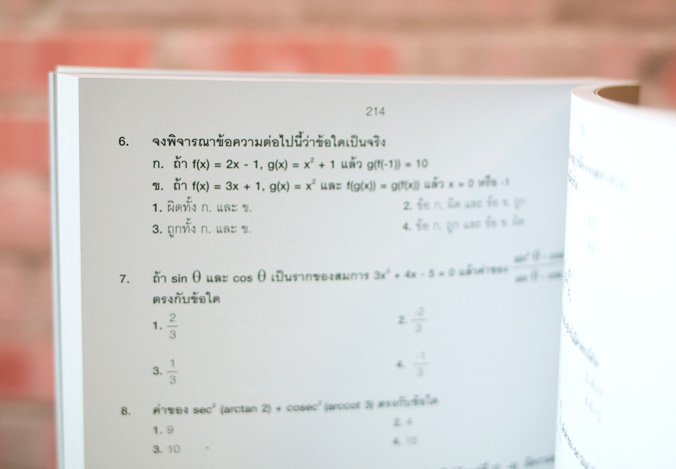 214
6. จงพิจารณาข้อความต่อไปนี้ว่าข้อใดเป็นจริง
ก. ถ้า f(x) = 2x - 1, g(x) = x² + 1 แล้ว g(f(-1)) = 10
ข. ถ้า f(x) = 3x + 1, g(x) = x² และ f(g(x)) = g(f(x)) แล้ว x = 0 หรือ -1
1. ผิดทั้ง ก. และ ข. 2. ข้อ ก. ผิด และ ข้อ ข. ถูก
3. ถูกทั้ง ก. และ ข. 4. ข้อ ก. ถูก และ ข้อ ข. ผิด
7. ถ้า sin θ และ cos θ เป็นรากของสมการ 3x² + 4x - 5 = 0 แล้วค่าของ
ตรงกับข้อใด
1. 2/3 2. -2/3
3. 1/3 4. -1/3
8. ค่าของ sec² (arctan 2) + cosec² (arccot 3) ตรงกับข้อใด
1. 9 2.
3. 10 4. 15